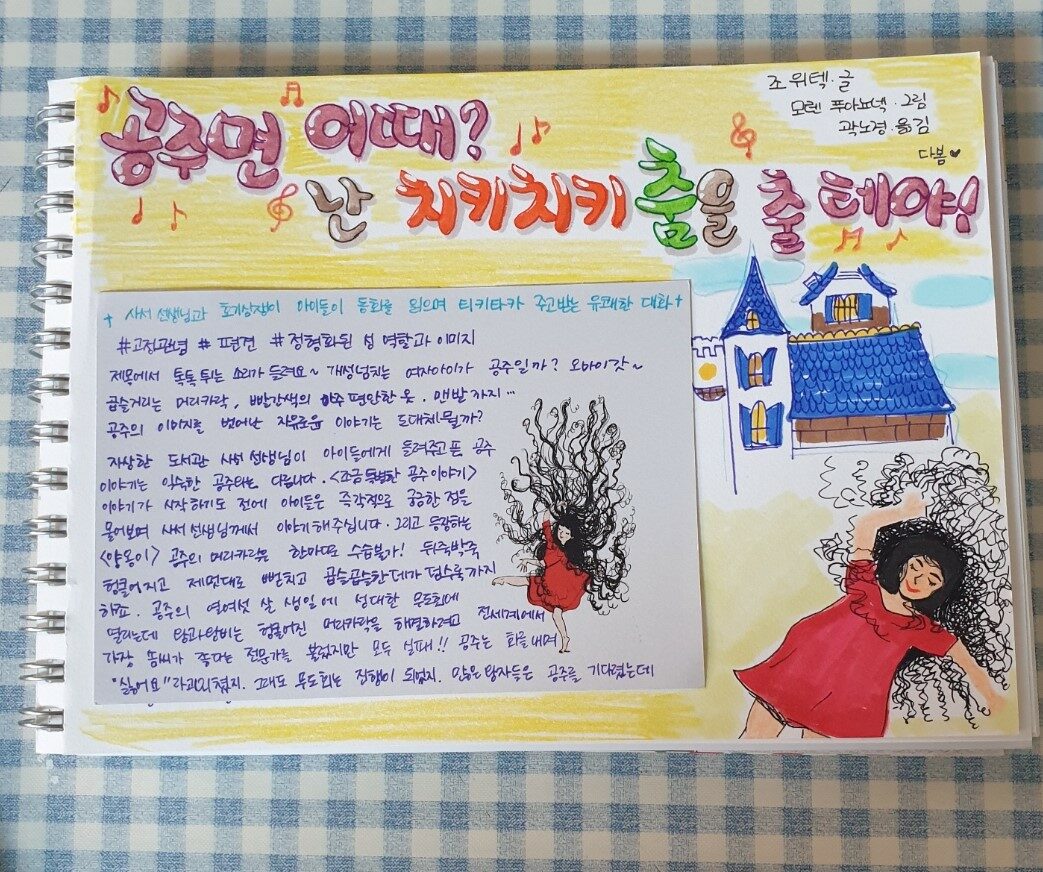 공주면 어때?
난 치키치키 춤을 출 테야!
조 위텍·글
모렌 푸아뇨넥·그림
곽노경·옮김
다봄♥
+ 사서 선생님과 호기심쟁이 아이들이 동화를 읽으며 티키타카 주고받는 유쾌한 대화+
#고정관념 # 편견 # 정형화된 성 역할과 이미지
제목에서 톡톡 튀는 소리가 들려요~ 개성넘치는 여자아이가 공주일까? 오마이갓~
곱슬거리는 머리카락, 빨간색의 아주 편안한 옷, 맨발까지…
공주의 이미지를 벗어난 자유로운 이야기는 도대체 뭘까?
자상한 도서관 사서 선생님이 아이들에게 들려주고픈 공주
이야기는 익숙한 공주와는 다릅니다. <조금 특별한 공주이야기>
이야기가 시작하기도 전에 아이들은 즉각적으로 궁금한 점을
물어보며 사서 선생님께서 이야기해주십니다. 그리고 등장하는
<양옹이> 공주의 머리카락은 한마디로 수습불가! 뒤죽박죽
헝클어지고 제멋대로 뻗치고 곱슬곱슬한데가 덥수룩까지
해요. 공주의 열여섯 살 생일에 성대한 무도회에
열리는데 왕과왕비는 헝클어진 머리카락을 해결하려고 전세계에서
가장 솜씨가 좋다는 전문가를 불렀지만 모두 실패!! 공주는 화를 내며
"싫어요"라고외쳤지. 그래도 무도회는 진행이 되었지. 많은 왕자들은 공주를 기다렸는데